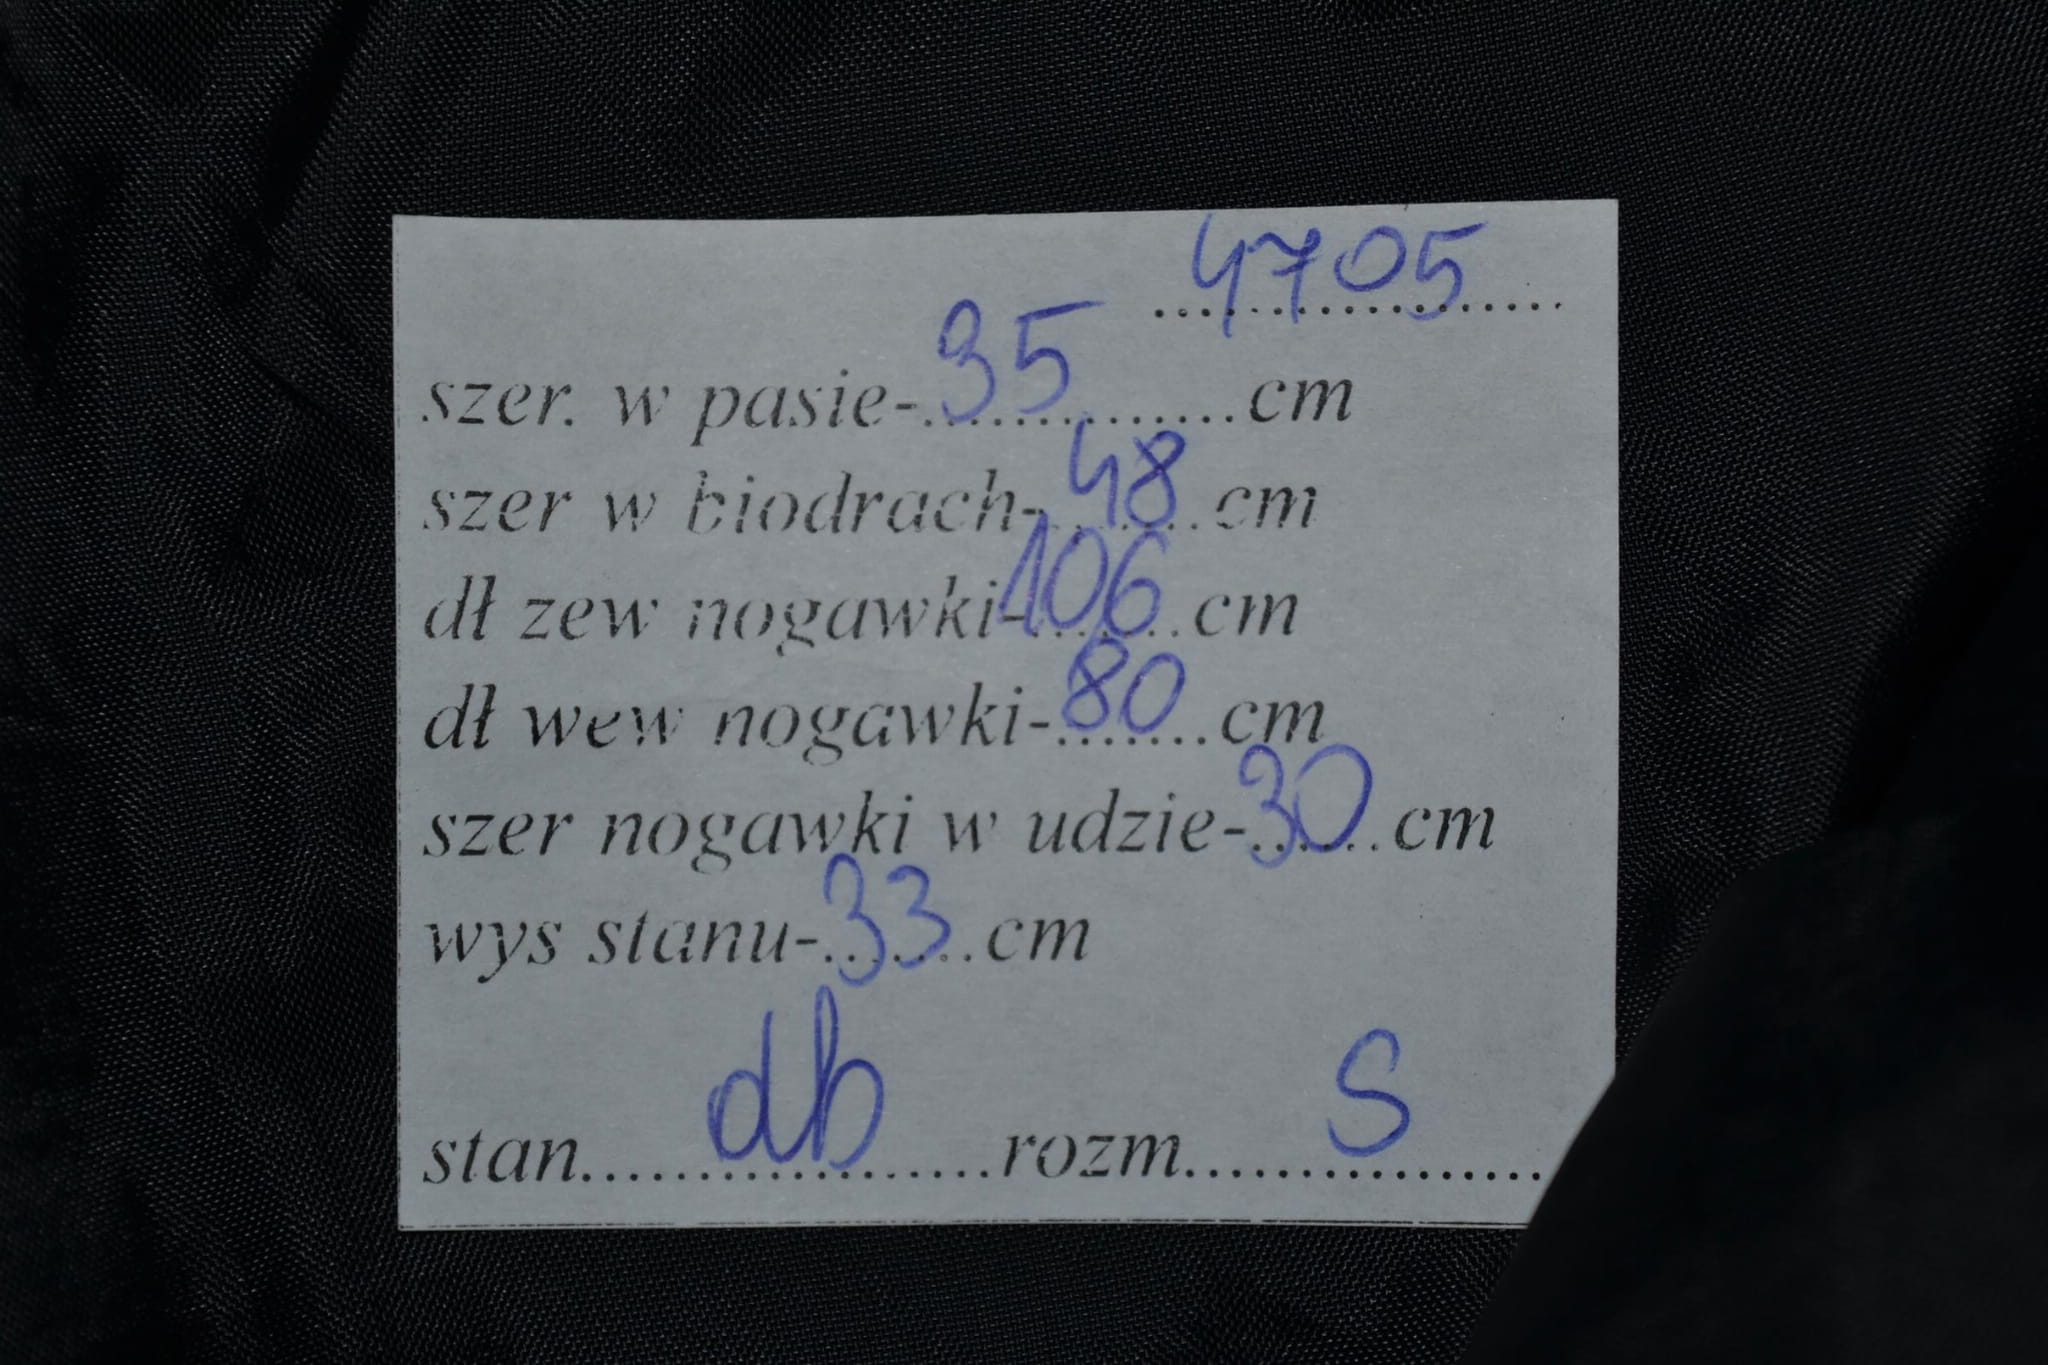 4705
szer. w pasie-35.............cm
szer w biodrach-48.......cm
dł zew nogawki-106.......cm
dł wew nogawki-80.......cm
szer nogawki w udzie-30......cm
wys stanu-33.......cm
stan........db..........rozm.......S........